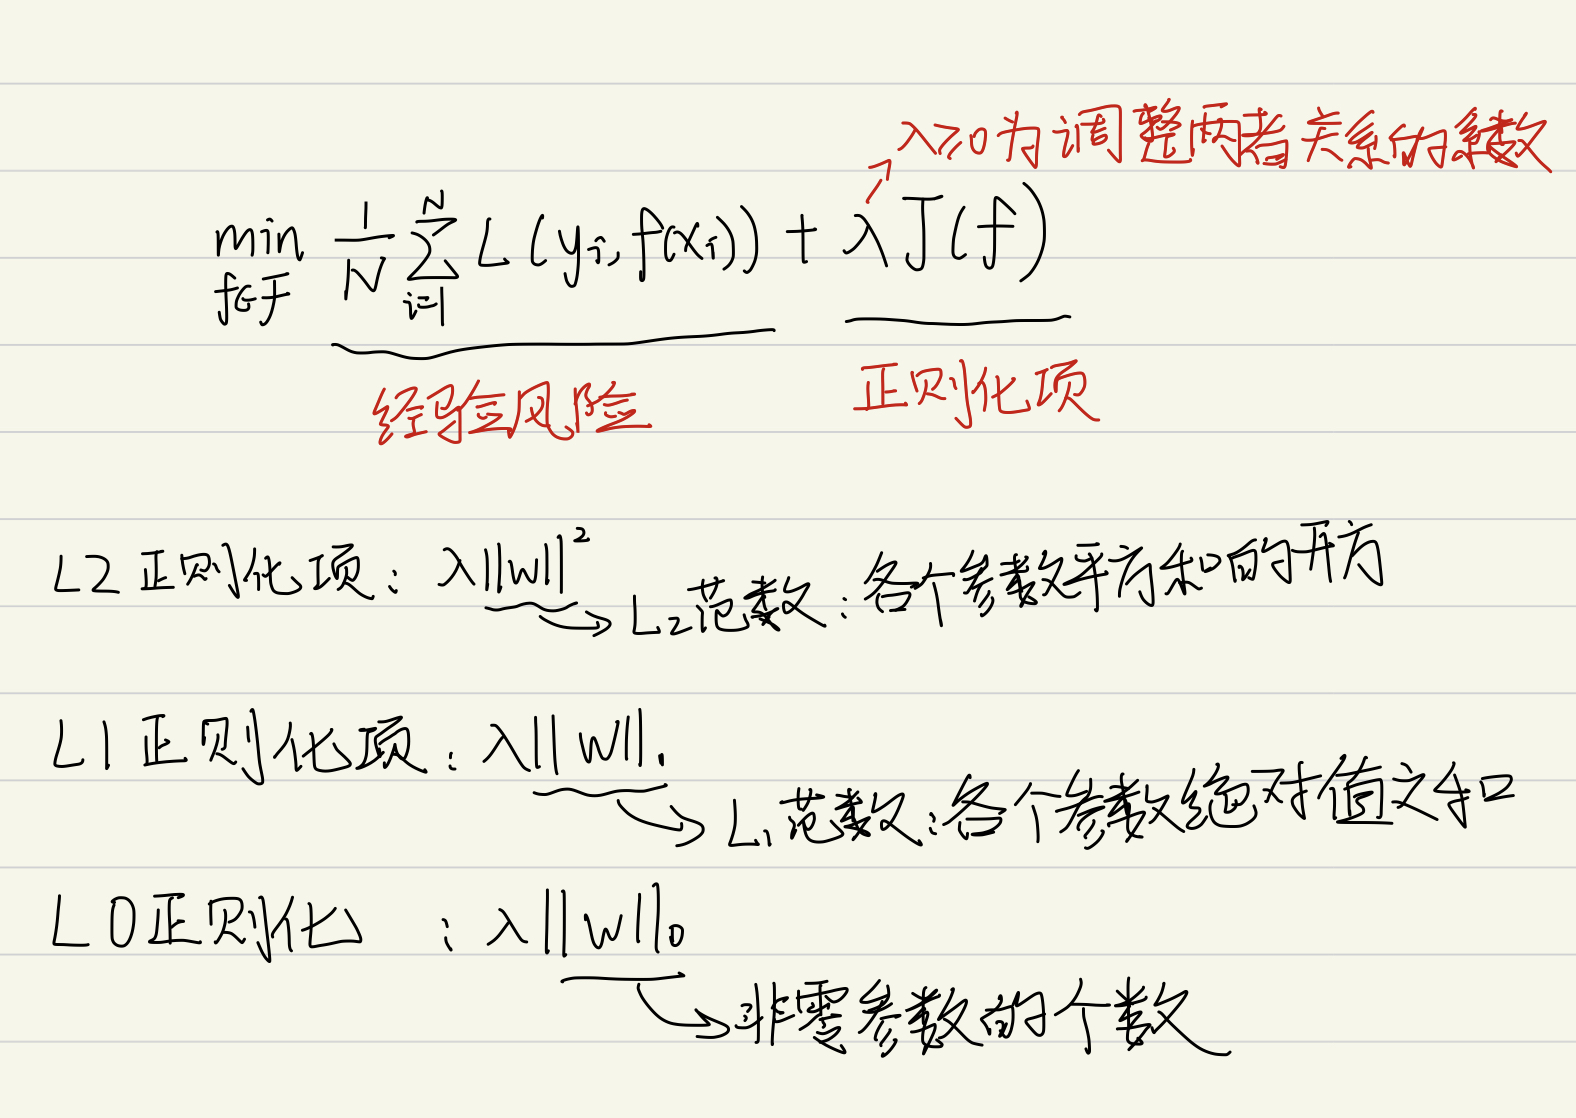 λ≥0为调整两者关系的系数
min f∈F 1/N ∑_{i=1}^{N} L(y_i, f(x_i)) + λJ(f)
经验风险 正则化项
L2正则化项: λ||w||²
L₂范数:各个参数平方和的开方
L1正则化项: λ||w||₁
L₁范数:各个参数绝对值之和
L0正则化 : λ||w||₀
非零参数的个数